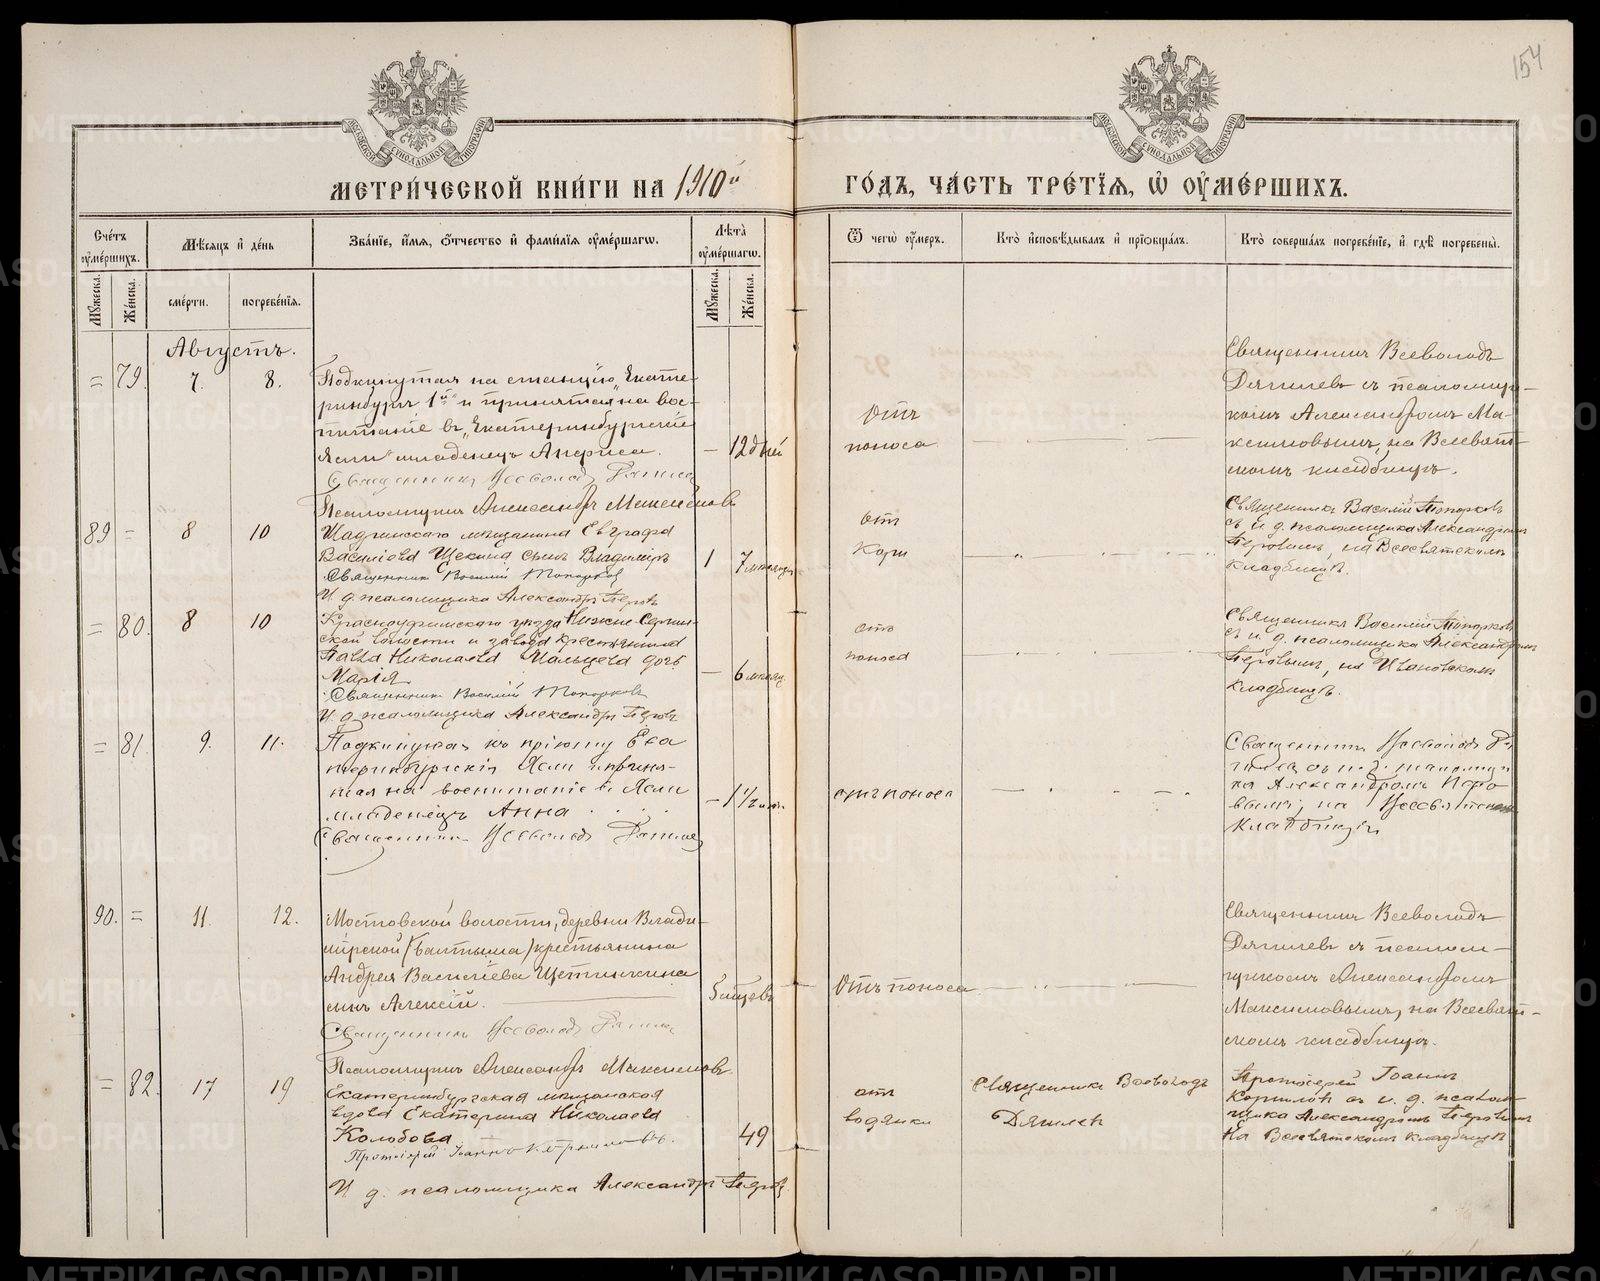 154
МОСКОВСКОЙ СѴНОДАЛЬНОЙ ТИПОГРАФІИ
МОСКОВСКОЙ СѴНОДАЛЬНОЙ ТИПОГРАФІИ
МЕТРИ́ЧЕСКОЙ КНИ́ГИ НА 1910й ГО́ДЪ, ЧА́СТЬ ТРЕ́ТЇѦ, Ѽ ОУМЕ́РШИХЪ.
Сче́тъ оумершихъ.
Мѣсѧцъ и день
Зва́нїе, и́мѧ, ѻтчество и фами́лїѧ оуме́ршагѡ.
Лѣта̀ оуме́ршагѡ.
Ѿ чегѡ̀ оу́меръ.
Кто̀ и҆сповѣ́дывалъ и҆ прїѡбща́лъ.
Кто̀ соверша́лъ погребе́нїе, и҆ гдѣ̀ погребены̀.
Мꙋжеска.
Же́нска.
сме́рти.
погребе́нїѧ.
Мꙋжеска.
Же́нска.
Августъ.
= 79. 7. 8.
Подкинутая на станцію „Екате-
ринбургъ 1й" и принятая на вос-
питаніе въ „Екатеринбургскіе
Ясли" младенецъ Анфиса.
Священникъ Всеволодъ
Псаломщикъ Александръ Максимовъ
– 12 дней
Отъ
поноса
Священникъ Всеволодъ
Дягилевъ съ псаломщи-
комъ Александромъ Ма-
ксимовымъ, на Всесвят-
скомъ кладбищѣ.
89 = 8 10
Шадринскаго мѣщанина Евграфа
Василіева Щекина сынъ Владиміръ
Священникъ Василій Топорковъ
И. д. псаломщика Александръ Перовъ
1 7 мѣсяц.
отъ
Кори
Священникъ Василій Топорковъ
съ и. д. псаломщика Александромъ
Перовымъ, на Всесвятскомъ
кладбищѣ.
= 80. 8 10
Красноуфимскаго уѣзда Нижне-Сергин-
ской волости и завода крестьянина
Павла Николаева Мальцева дочь
Марія
Священникъ Василій Топорковъ
И. д. псаломщика Александръ Перовъ
– 6 мѣсяц.
отъ
поноса
Священникъ Василій Топорковъ
съ и. д. псаломщика Александромъ
Перовымъ, на Ивановскомъ
кладбищѣ.
= 81. 9. 11.
Подкинутая къ пріюту Ека
теринбургскія Ясли и приня-
тая на воспитаніе въ Ясли
младенецъ Анна
Священникъ Всеволодъ
– 1 1/2
отъ поноса
Священникъ Всеволодъ
съ и. д. псаломщи
ка Александромъ Перо
вымъ, на Всесвятском
кладбищѣ
90. = 11. 12.
Мостовской волости, деревни Влади-
мірской (Балтыма) крестьянина
Андрея Василіева Щетинкина
сынъ Алексій.
Священникъ Всеволодъ
Псаломщикъ Александръ Максимовъ.
Отъ поноса
Священникъ Всеволодъ
Дягилевъ съ псалом-
щикомъ Александромъ
Максимовымъ, на Всесвят-
скомъ кладбищѣ.
= 82. 17 19
Екатеринбургская мѣщанская
вдова Екатерина Николаева
Колобова
Протоіерей Іоаннъ Корниловъ.
И д. псаломщика Александръ Перовъ
49
отъ
водянки
Священникъ Всеволодъ
Дягилевъ
Протоіерей Іоаннъ
Корниловъ съ и. д. псалом-
щика Александромъ Перовымъ
На Всесвятскомъ кладбищѣ
METRIKI.GASO-URAL.RU